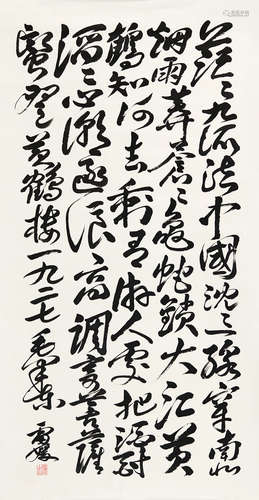 茫々九派流中國沈々一線穿南北
烟雨莽蒼々龜蛇鎖大江黃
鶴知何去剩有游人處把酒酹
滔々心潮逐浪高調寄菩薩
蠻登黃鶴樓一九二七毛澤東